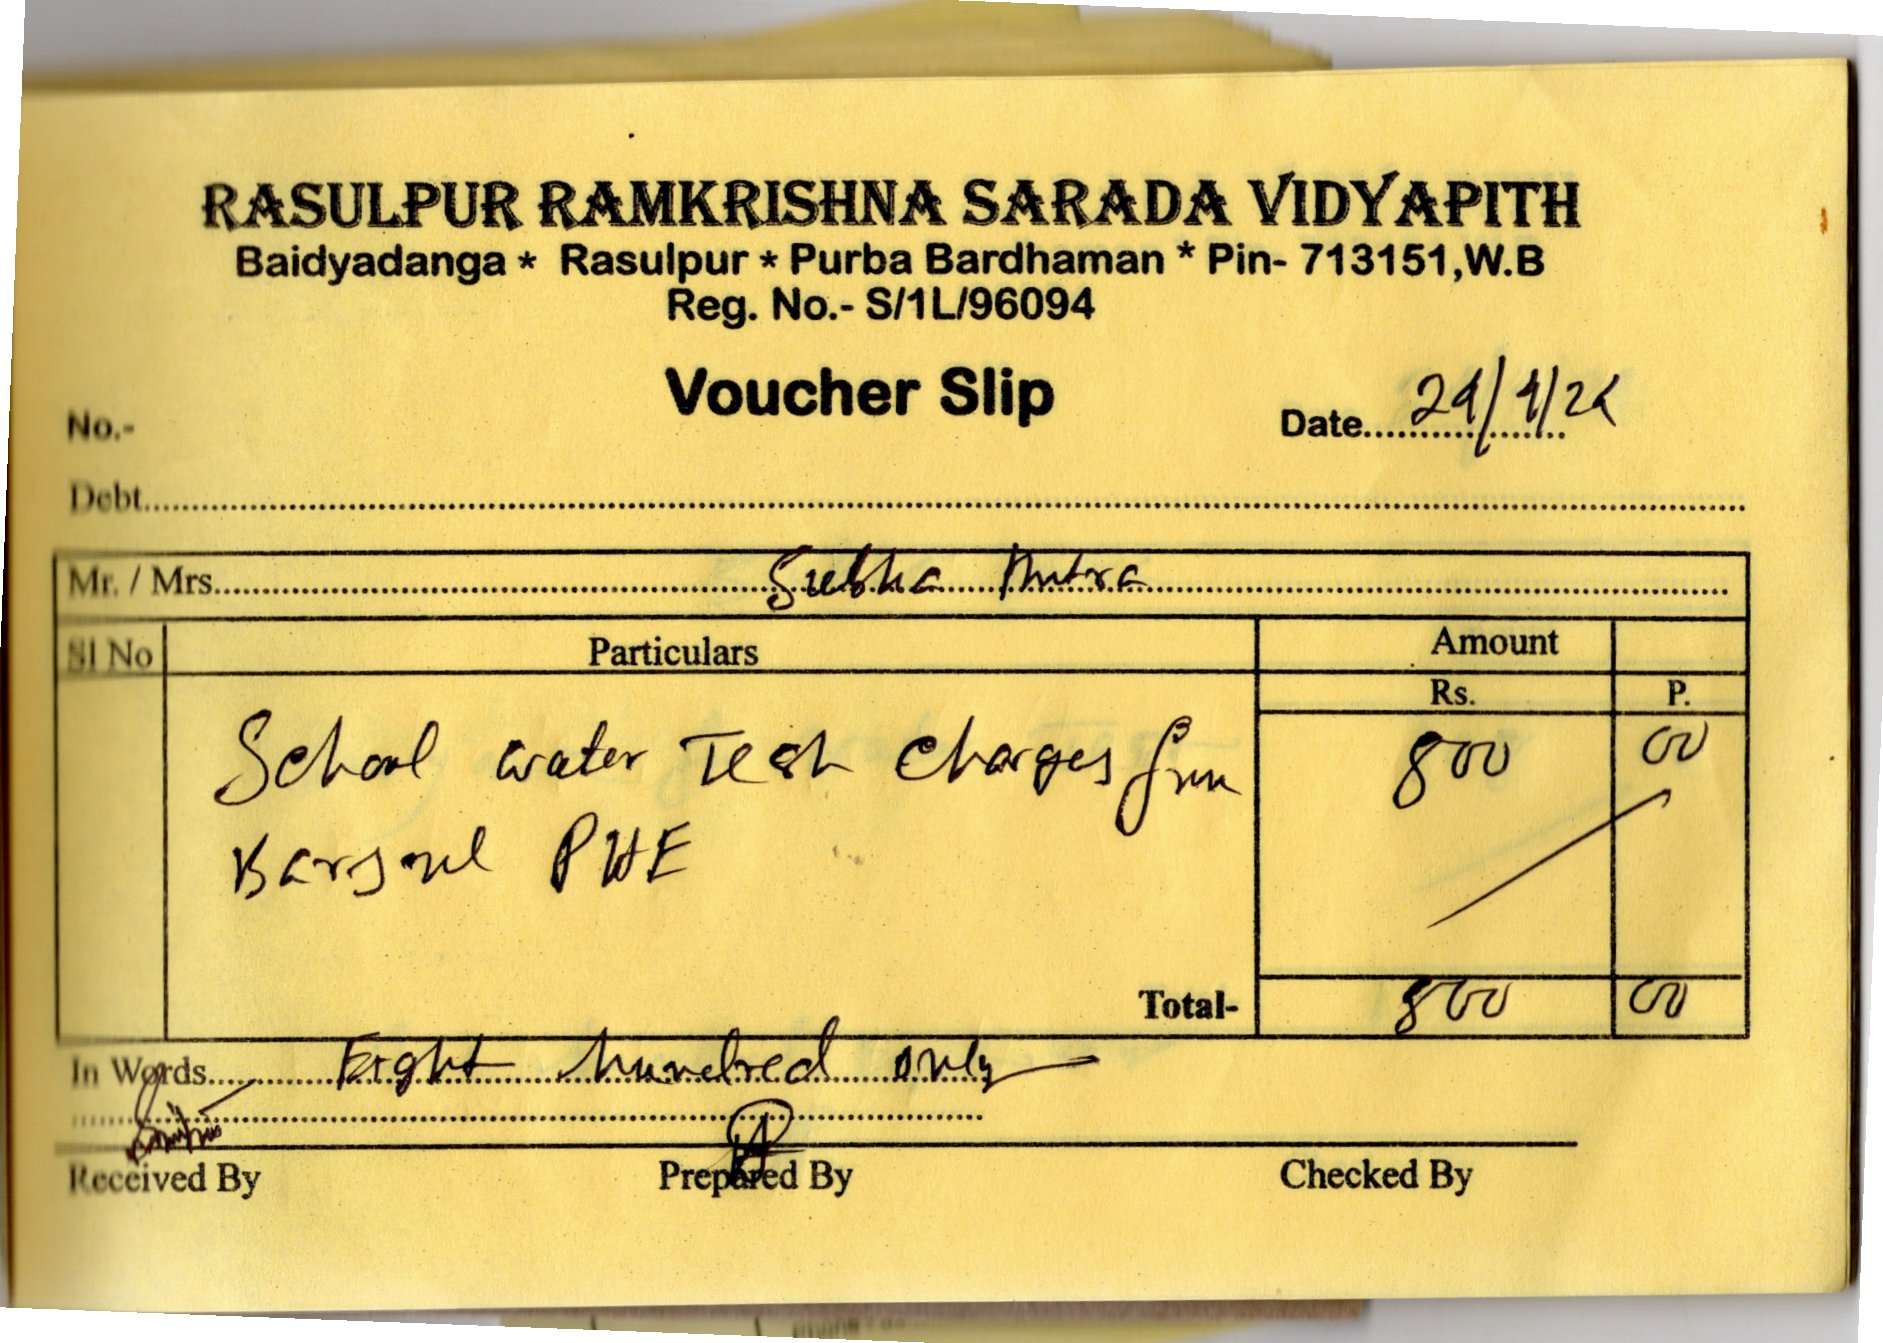 RASULPUR RAMKRISHNA SARADA VIDYAPITH
Baidyadanga * Rasulpur * Purba Bardhaman * Pin- 713151,W.B
Reg. No.- S/1L/96094
Voucher Slip
No.-
Date
Debt
Mr. / Mrs. Subha Mitra
Sl No Particulars Amount
Rs. P.
School water Test charges from 800 00
Barsul PHE
Total- 800 00
In Words Eight hundred only
Received By Prepared By Checked By